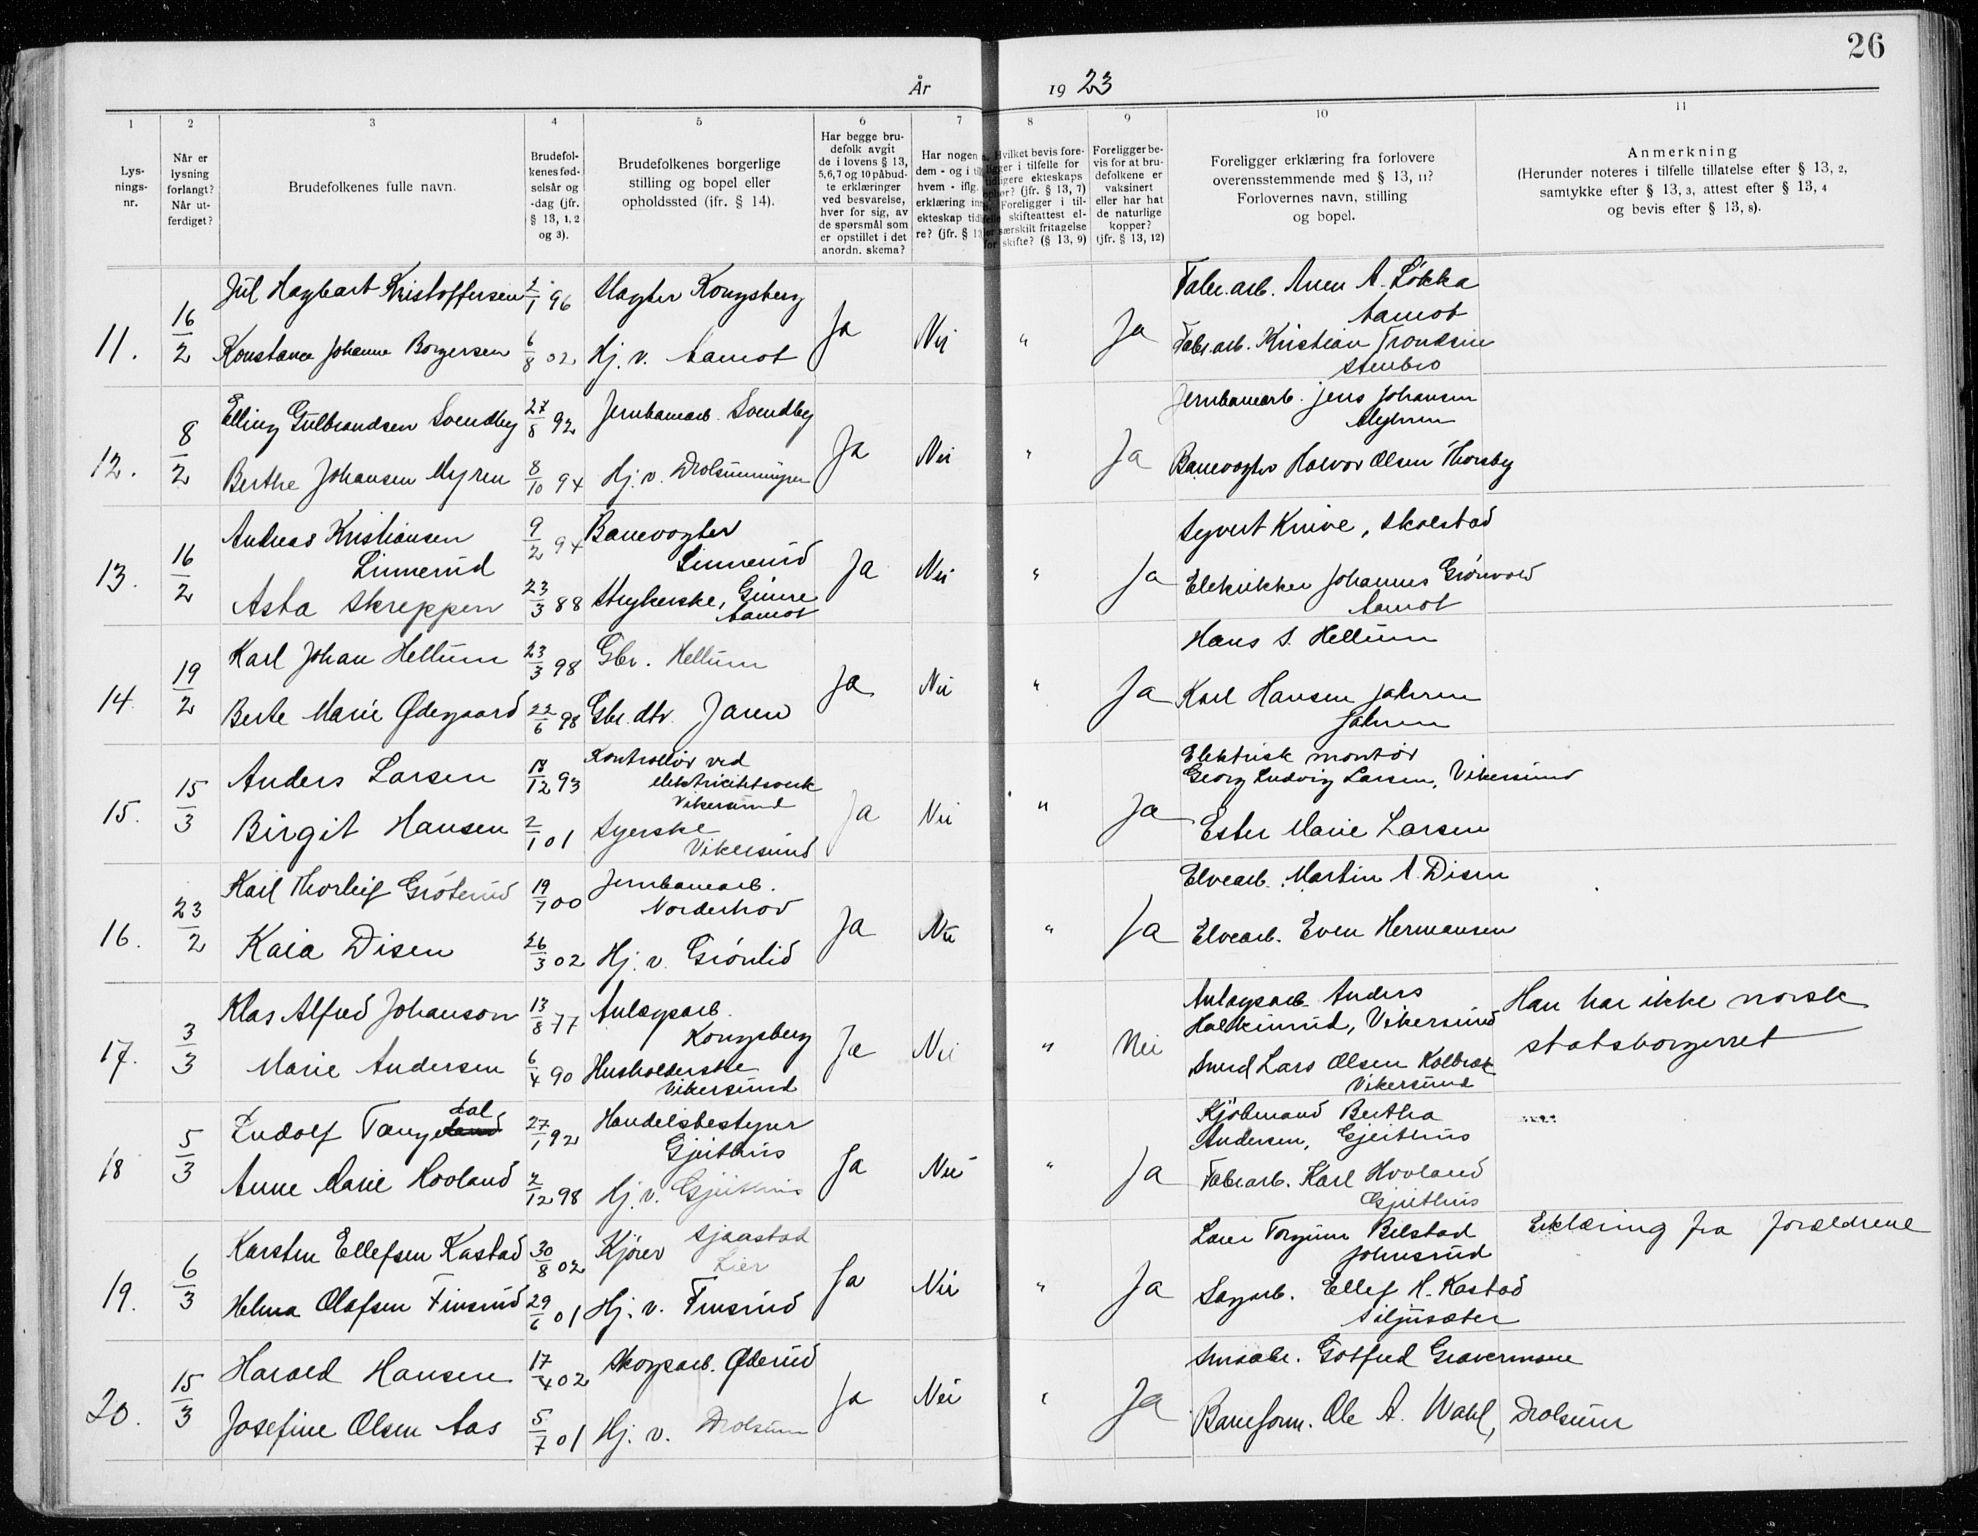 26
År 1923
1 2 3 4 5 6 7 8 9 10 11
Lys-
nings-
nr.
Når er
lysning
forlangt?
Når ut-
ferdiget?
Brudefolkenes fulle navn.
Brudefol-
kenes fød-
selsår og
-dag (jfr.
§ 13, 1, 2
og 3).
Brudefolkenes borgerlige
stilling og bopel eller
opholdssted (jfr. § 14).
Har begge bru-
defolk avgit
de i lovens § 13,
5,6,7 og 10 påbud-
te erklæringer
ved besvarelse,
hver for sig, av
de spørsmål som
er opstillet i det
anordn. skema?
Har nogen
dem - og i
hvem - iflg.
erklæring
ekteskap tid
re? (jfr. §
Hvilket bevis fore-
i tilfelle for
ekteskaps
(jfr. § 13, 7)
Foreligger i til-
skifteattest el-
særskilt fritagelse
for skifte? (§ 13, 9)
Foreligger be-
vis for at bru-
defolkene er
vaksinert
eller har hat
de naturlige
kopper?
(jfr. § 13, 12)
Foreligger erklæring fra forlovere
overensstemmende med § 13, 11?
Forlovernes navn, stilling
og bopel.
Anmerkning
(Herunder noteres i tilfelle tillatelse efter § 13, 2,
samtykke efter § 13, 3, attest efter § 13, 4
og bevis efter § 13, 8).
11. 16/2 Jul Hagbart Kristoffersen 2/1 96 Slagter Kongsberg Ja Nei " Ja Fabr.arb. Aren A. Løkka
Aamot
Konstance Johanne Borgersen 6/8 02 Hj. v. Aamot Fabr.arb. Kristian Trondsen
Stenbro
12. 8/2 Elling Gulbrandsen Svendby 27/8 92 Jernbanearb. Svendby Ja Nei " Ja Jernbanearb. Jens Johansen
Myhren
Berthe Johansen Myren 8/10 94 Hj. v. Banevogter Halvor Olsen Thorsby
13. 16/2 Andreas Kristiansen
Linnerud 9/2 94 Banevogter
Linnerud Ja Nei " Ja Syvert Knive, Skalstad
Asta Skreppen 23/3 88 Strykerske, Geithus
Aamot Elektriker Johannes Grønvold
Aamot
14. 19/2 Karl Johan Hellum 23/3 98 Gbr. Hellum Ja Nei " Ja Hans S. Hellum
Berte Marie Ødegaard 22/6 98 Gbr. dtr. Jaren Karl Hansen Jahren
Jahren
15. 15/3 Anders Larsen 17/12 93 Kontrollør ved
elektricitetsverk
Vikersund Ja Nei " Ja Elektrisk montør
Georg Ludvig Larsen, Vikersund
Birgit Hansen 2/1 01 Syerske
Vikersund Ester Marie Larsen
16. 23/2 Karl Thorleif Grøterud 19/7 00 Jernbanearb.
Norderhov Ja Nei " Ja Elvearb. Martin A. Disen
Kaia Disen 26/3 02 Hj. v. Grønlid Elvearb. Even Hermansen
17. 3/3 Klas Alfred Johanson 13/8 77 Anlægsarb.
Kongsberg Ja Nei " Nei Anlægsarb. Anders
Halkinrud, Vikersund Han har ikke norsk
statsborgerret
Marie Andersen 6/4 90 Husholderske
Vikersund Smed Lars Olsen Kolbræk
Vikersund
18 5/3 Ludolf Tangeland dal 27/1 92 Handelsbestyrer
Gjeithus Ja Nei " Ja Kjøbmand Bertha
Andersen, Gjeithus
Anne Marie Hovland 2/12 98 Hj. v. Gjeithus Fabr.arb. Karl Hovland
Gjeithus
19. 6/3 Karsten Ellefsen Kastad 30/8 02 Kjører Sjaastad
Lier Ja Nei " Ja Bilstad
Johnsrud Erklæring fra forældrene
Helma Olafsen Finsrud 29/6 01 Hj. v. Finsrud Sagarb. Ellef H. Kastad
Siljusæter
20. 15/3 Harald Hansen 17/4 02 Skogsarb. Øderud Ja Nei " Ja Smaabr. Gotfred Gravermoen
Josefine Olsen Aas 5/7 01 Hj. v. Drolsum Baneform. Ole A. Wahl, Drolsum